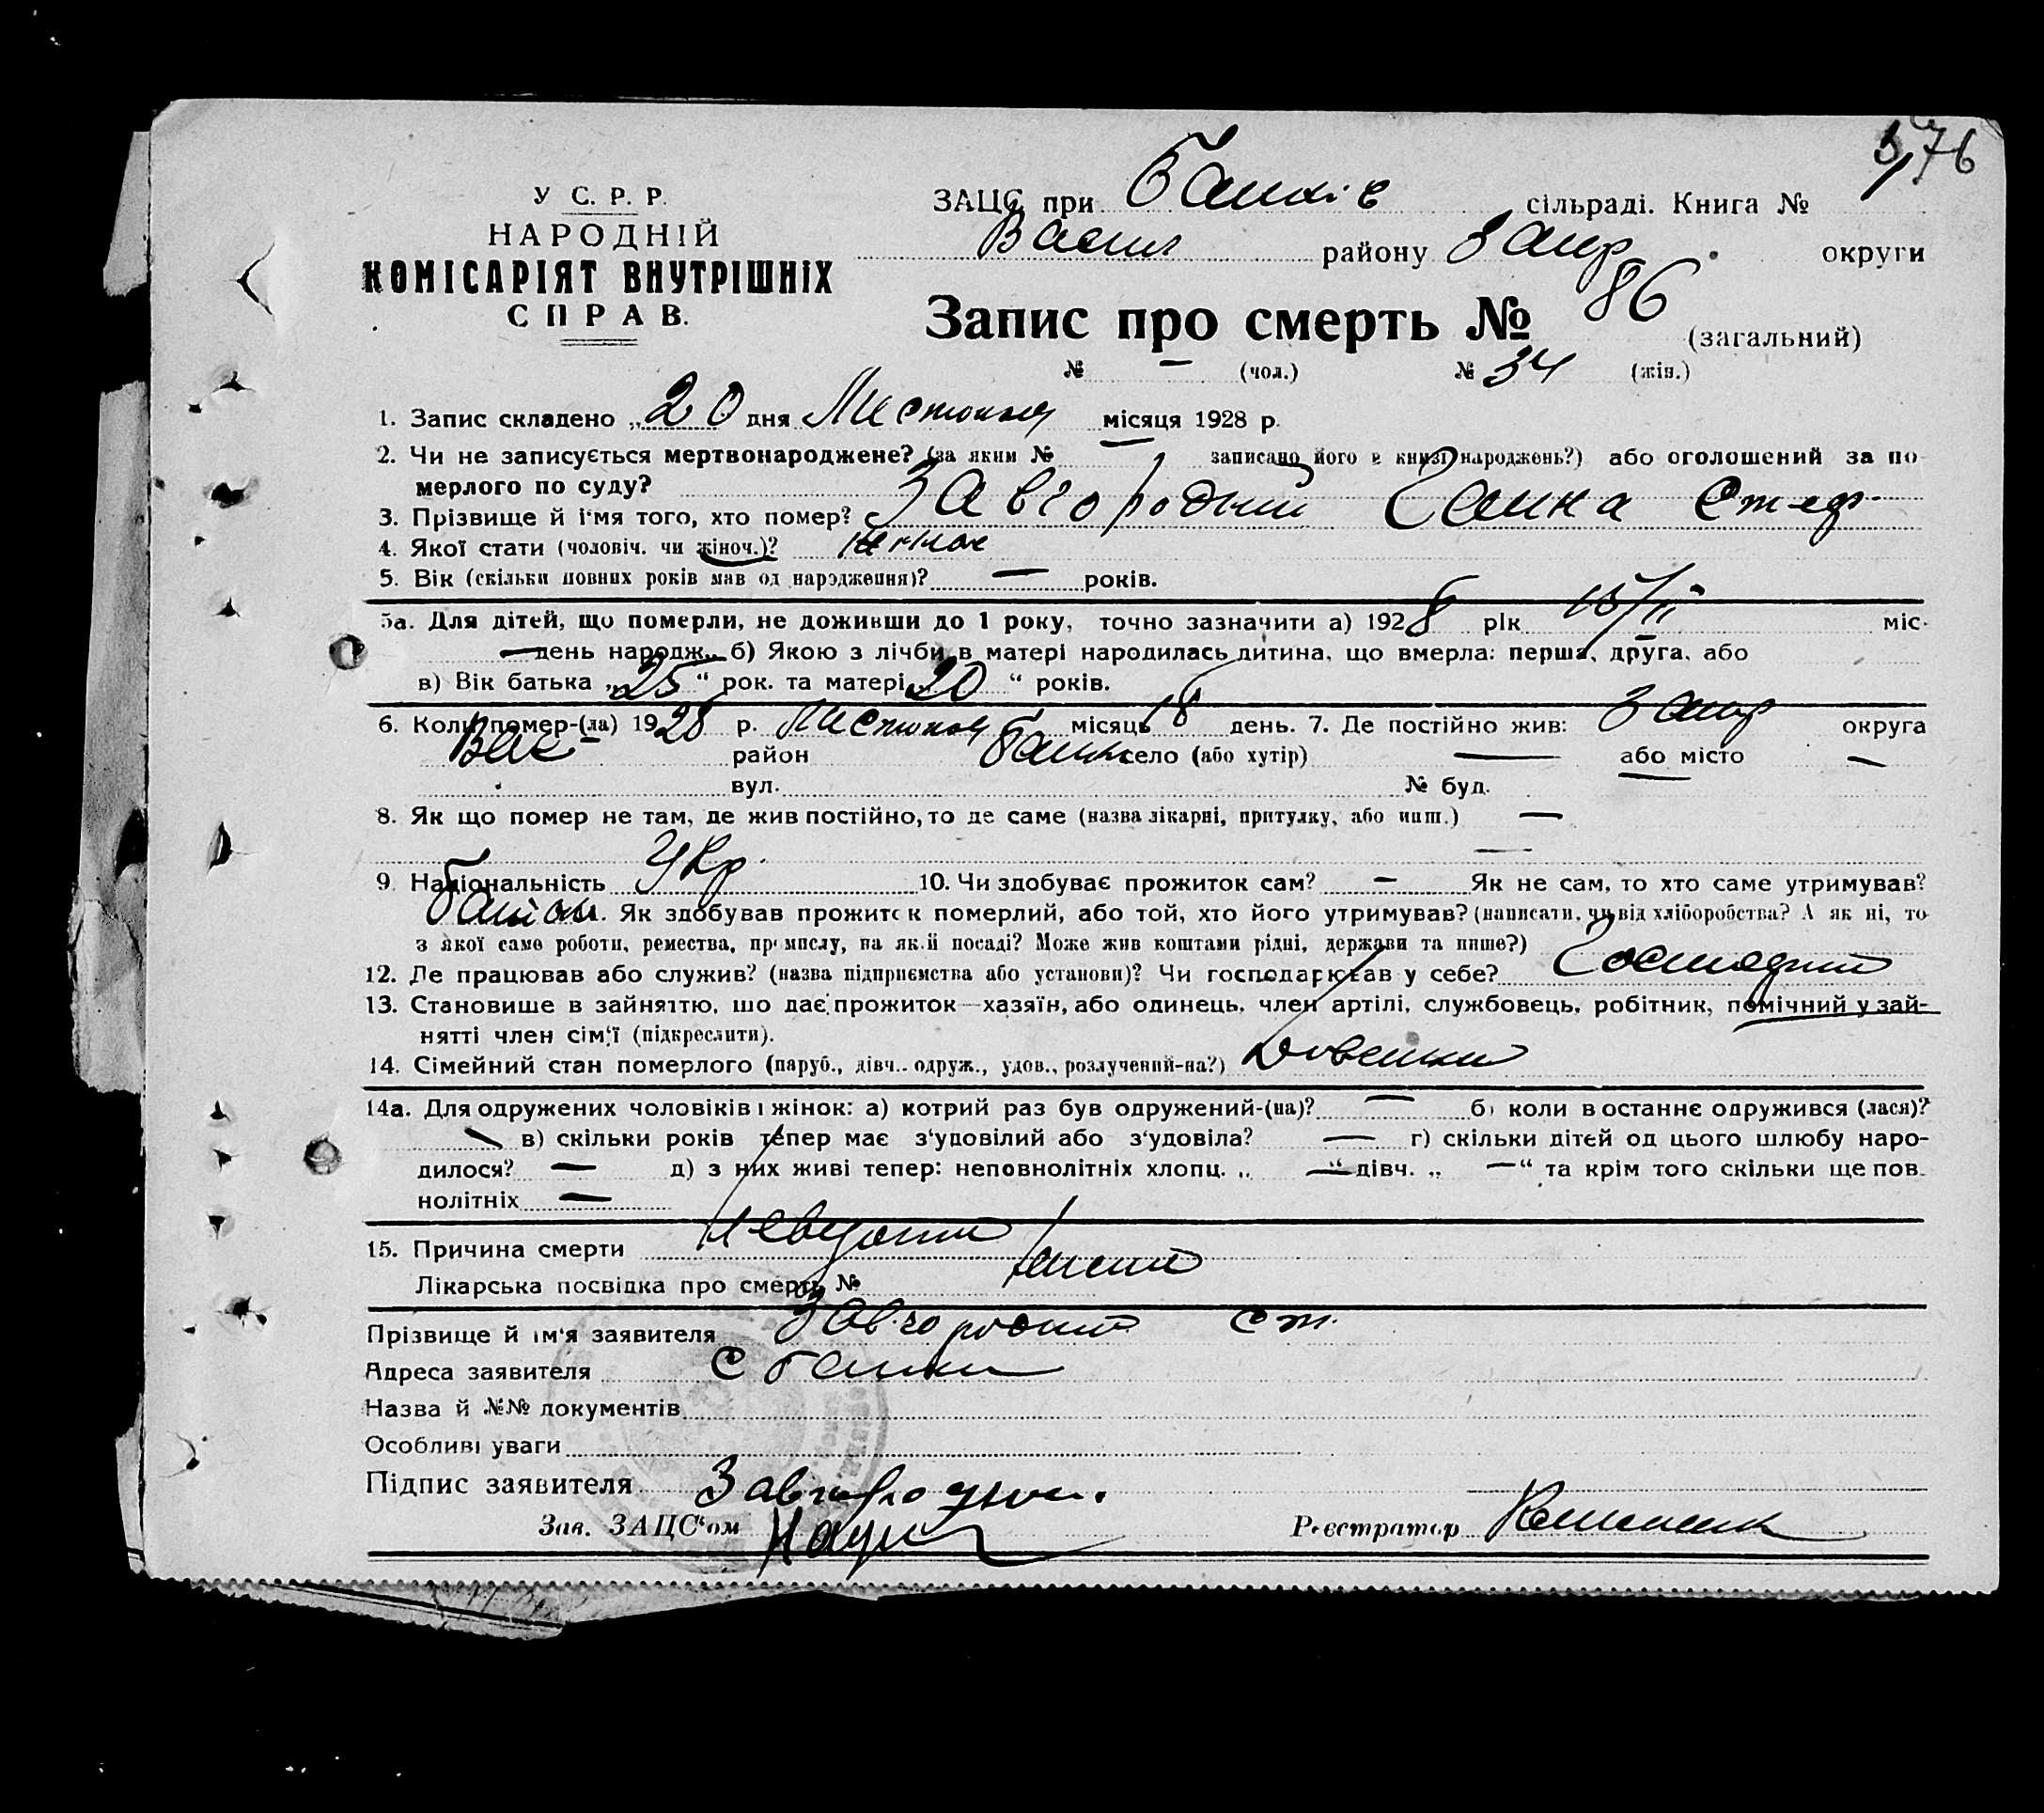 76
У С. Р. Р.
НАРОДНІЙ
КОМІСАРІЯТ ВНУТРІШНІХ
СПРАВ.
ЗАЦС при Балків сільраді. Книга №
Васил району Запр. округи
Запис про смерть № 86 (загальний)
№ — (чол.) № 34 (жін.)
1. Запис складено „20 дня Листопад місяця 1928 р.
2. Чи не записується мертвонароджене? (за яким № — записано його в книзі народжень?) або оголошений за по-
мерлого по суду?
3. Прізвище й ім'я того, хто помер? Завгородній Ганна Стеф.
4. Якої стати (чоловіч. чи жіноч.)? жіноч
5. Вік (скільки повних років мав од народження)? — років.
5а. Для дітей, що померли, не доживши до 1 року, точно зазначити а) 1928 рік 15/II міс.
— день народж., б) Якою з лічби в матері народилась дитина, що вмерла: перша, друга, або
в) Вік батька „25“ рок. та матері „20“ років.
6. Коли помер-(ла) 1928 р. Листопад місяць 18 день. 7. Де постійно жив: Запр округа
Вас район Балк село (або хутір) — або місто —
вул. № буд. —
8. Як що помер не там, де жив постійно, то де саме (назва лікарні, притулку, або инш.) —
—
9. Національність Укр. 10. Чи здобуває прожиток сам? — Як не сам, то хто саме утримував?
Батьки. Як здобував прожиток померлий, або той, хто його утримував? (написати, чи від хліборобства? А як ні, то
з якої саме роботи, ремества, промислу, на якій посаді? Може жив коштами рідні, держави та инше?)
12. Де працював або служив? (назва підприємства або установи)? Чи господарював у себе?
13. Становище в зайняттю, що дає прожиток—хазяїн, або одинець, член артілі, службовець, робітник, помічний у зай-
нятті член сім'ї (підкреслити).
14. Сімейний стан померлого (паруб., дівч.. одруж., удов., розлучений-на?)
14а. Для одружених чоловіків і жінок: а) котрий раз був одружений-(на)? — б) коли в останнє одружився (лася)?
— в) скільки років тепер має з'удовілий або з'удовіла? — г) скільки дітей од цього шлюбу наро-
дилося? — д) з них живі тепер: неповнолітніх хлопц. „—“ дівч. „—“ та крім того скільки ще пов-
нолітніх —
15. Причина смерти
Лікарська посвідка про смерть №
Прізвище й ім'я заявителя Завгородній Ст.
Адреса заявителя С Балки
Назва й №№ документів
Особливі уваги
Підпис заявителя
Зав. ЗАЦС'ом
Реєстратор